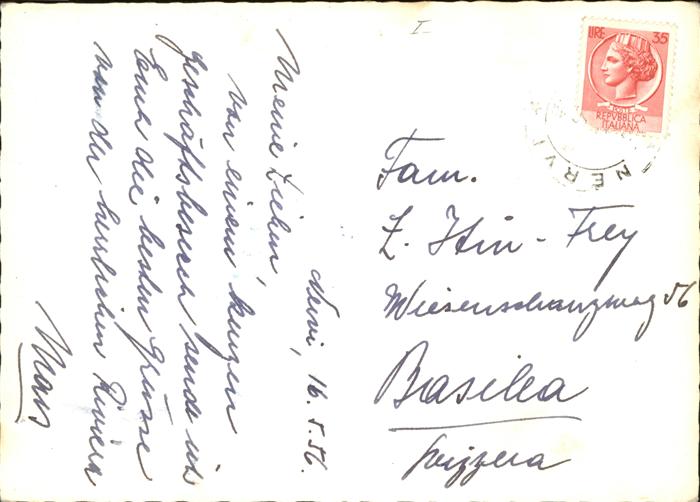 Nervi, 16.5.56.
Meine Lieben,
von einem kurzen
Geschäftsbesuch sende ich
Euch die besten Grüsse
von der herrlichen Riviera
Fam.
Z. Itin-Frey
Wiesenschanzweg 56
Basilea
Svizzera
I-
LIRE 35
POSTE
REPVBBLICA
ITALIANA
NERVI